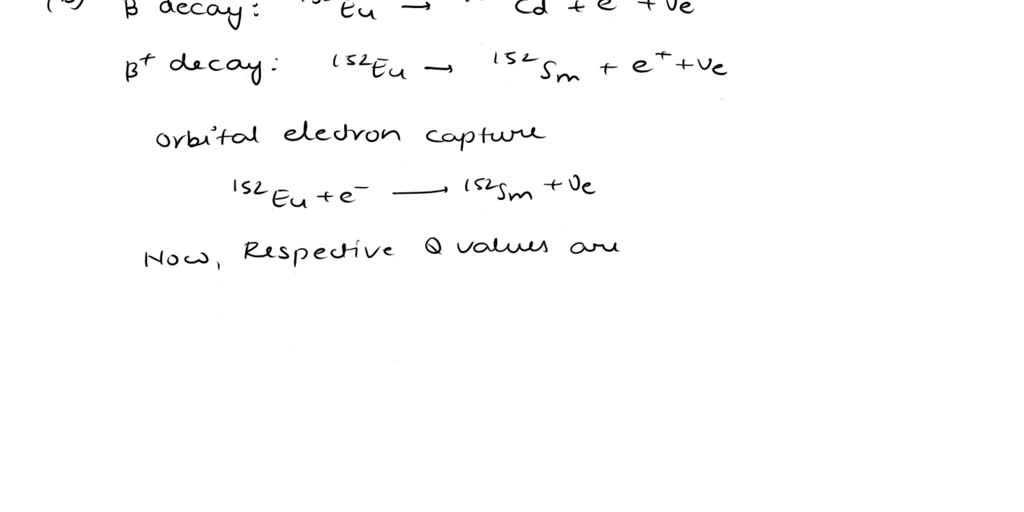 β decay: ¹⁵²Eu → Cd + e + νe
β⁺ decay: ¹⁵²Eu → ¹⁵²Sm + e⁺ + νe
orbital electron capture
¹⁵²Eu + e⁻ → ¹⁵²Sm + νe
Now, Respective Q values are